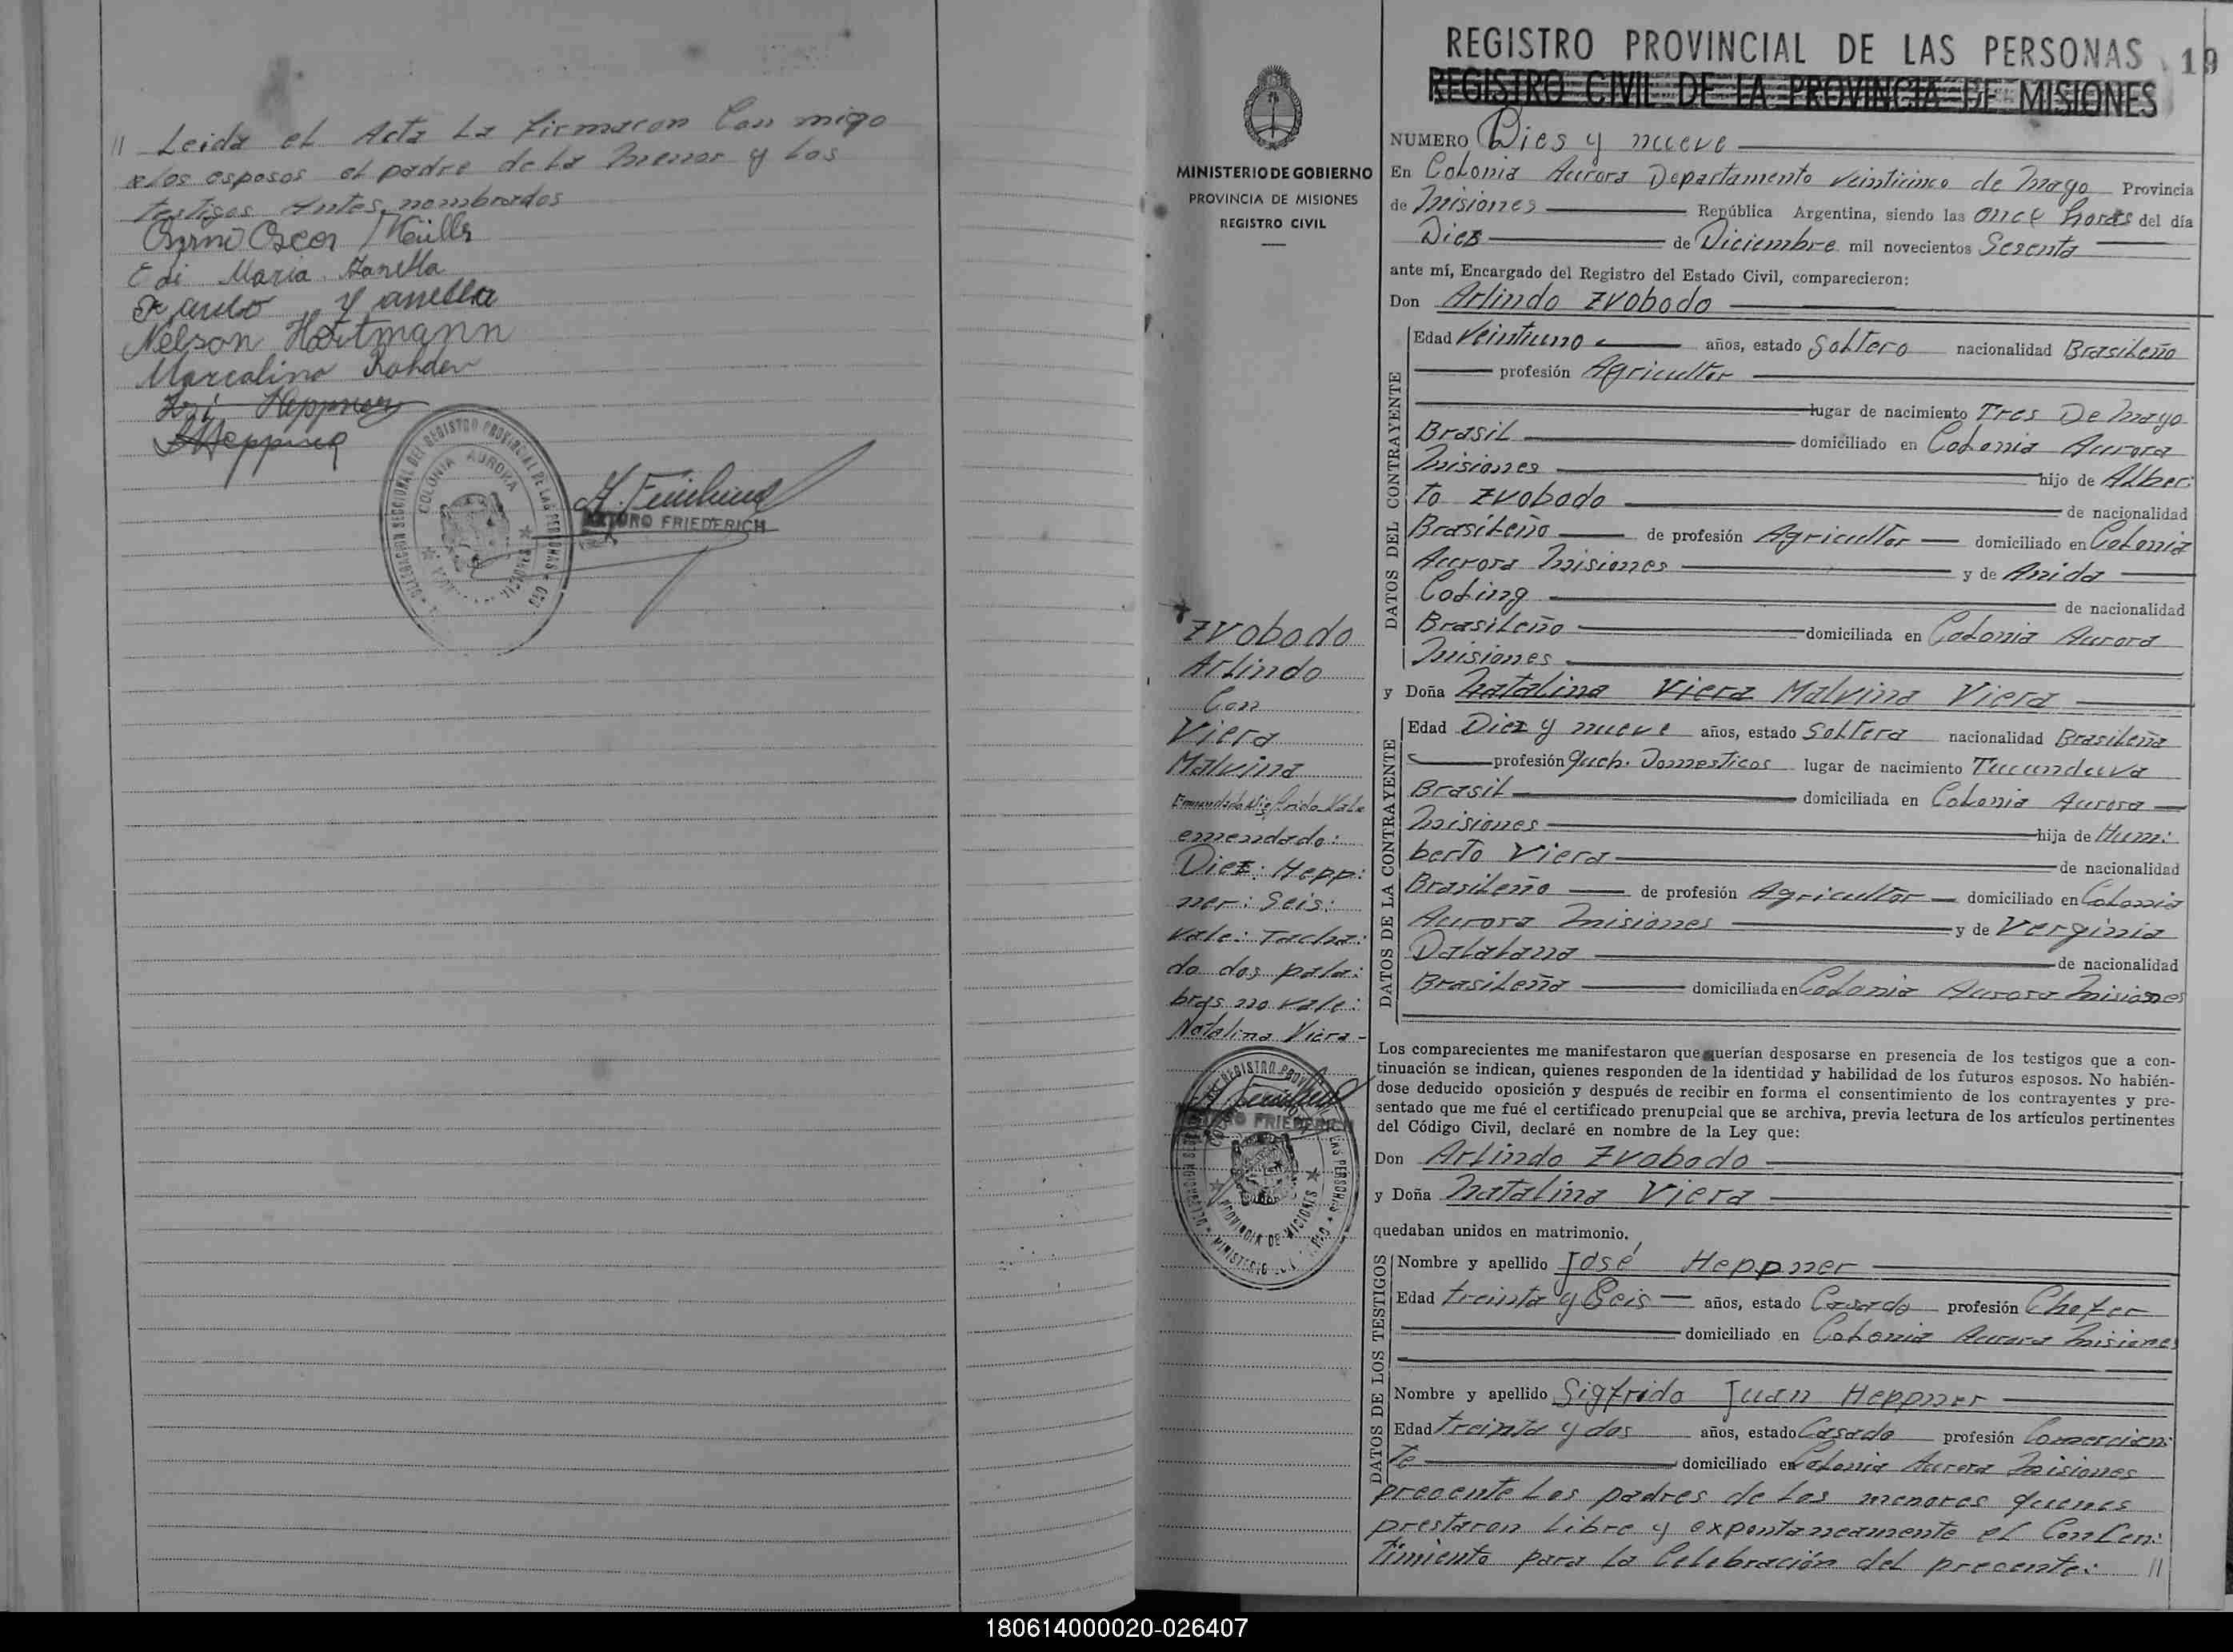 // Leida el Acta La firmaron Con migo
los esposos el padre de La menor y Los
testigos Antes nombrados
Oscar Müller
Edi Maria Zanella
Nelson Hartmann
Marcalino Rohden
Heppner
Heppner
DELEGACION SECCIONAL DEL REGISTRO PROVINCIAL DE LAS PERSONAS
COLONIA AURORA
ARTURO FRIEDERICH
MINISTERIO DE GOBIERNO
PROVINCIA DE MISIONES
REGISTRO CIVIL
Zvobodo
Arlindo
Con
Viera
Malvina
Emendado Sigfrido Vale
emendado:
Diez: Hepp:
ner: Seis:
Vale: Tacha:
do dos pala:
bras no vale:
Natalina Viera -
ARTURO FRIEDERICH
PROVINCIA DE MISIONES
REGISTRO PROVINCIAL DE LAS PERSONAS 19
REGISTRO CIVIL DE LA PROVINCIA DE MISIONES
NUMERO Dies y nueve
En Colonia Aurora Departamento Veinticinco de Mayo Provincia
de Misiones República Argentina, siendo las once horas del día
Diez de Diciembre mil novecientos Sesenta
ante mí, Encargado del Registro del Estado Civil, comparecieron:
Don Arlindo Zvobodo
DATOS DEL CONTRAYENTE
Edad Veintiuno años, estado Soltero nacionalidad Brasileño
profesión Agricultor
lugar de nacimiento Tres De Mayo
Brasil domiciliado en Colonia Aurora
Misiones hijo de Alber:
to Zvobodo de nacionalidad
Brasileño de profesión Agricultor domiciliado en Colonia
Aurora Misiones y de Anida
Coding de nacionalidad
Brasileño domiciliada en Colonia Aurora
Misiones
y Doña Natalina Viera Malvina Viera
DATOS DE LA CONTRAYENTE
Edad Diez y nueve años, estado Soltera nacionalidad Brasileña
profesión Queh. Domesticos lugar de nacimiento Tucunduva
Brasil domiciliada en Colonia Aurora
Misiones hija de Hum:
berto Viera de nacionalidad
Brasileño de profesión Agricultor domiciliado en Colonia
Aurora Misiones y de Verginia
Dalabana de nacionalidad
Brasileña domiciliada en Colonia Aurora Misiones
Los comparecientes me manifestaron que querían desposarse en presencia de los testigos que a con-
tinuación se indican, quienes responden de la identidad y habilidad de los futuros esposos. No habién-
dose deducido oposición y después de recibir en forma el consentimiento de los contrayentes y pre-
sentado que me fué el certificado prenupcial que se archiva, previa lectura de los artículos pertinentes
del Código Civil, declaré en nombre de la Ley que:
Don Arlindo Zvobodo
y Doña Natalina Viera
quedaban unidos en matrimonio.
DATOS DE LOS TESTIGOS
Nombre y apellido José Heppner
Edad treinta y Seis años, estado Casado profesión Chofer
domiciliado en Colonia Aurora Misiones
Nombre y apellido Sigfrido Juan Heppner
Edad treinta y dos años, estado Casado profesión Comercian:
te domiciliado en Colonia Aurora Misiones
precente Los padres de Los menores quenes
prestaron Libre y expontaneamente el Concen:
timiento para La Celebración del precente: //
180614000020-026407